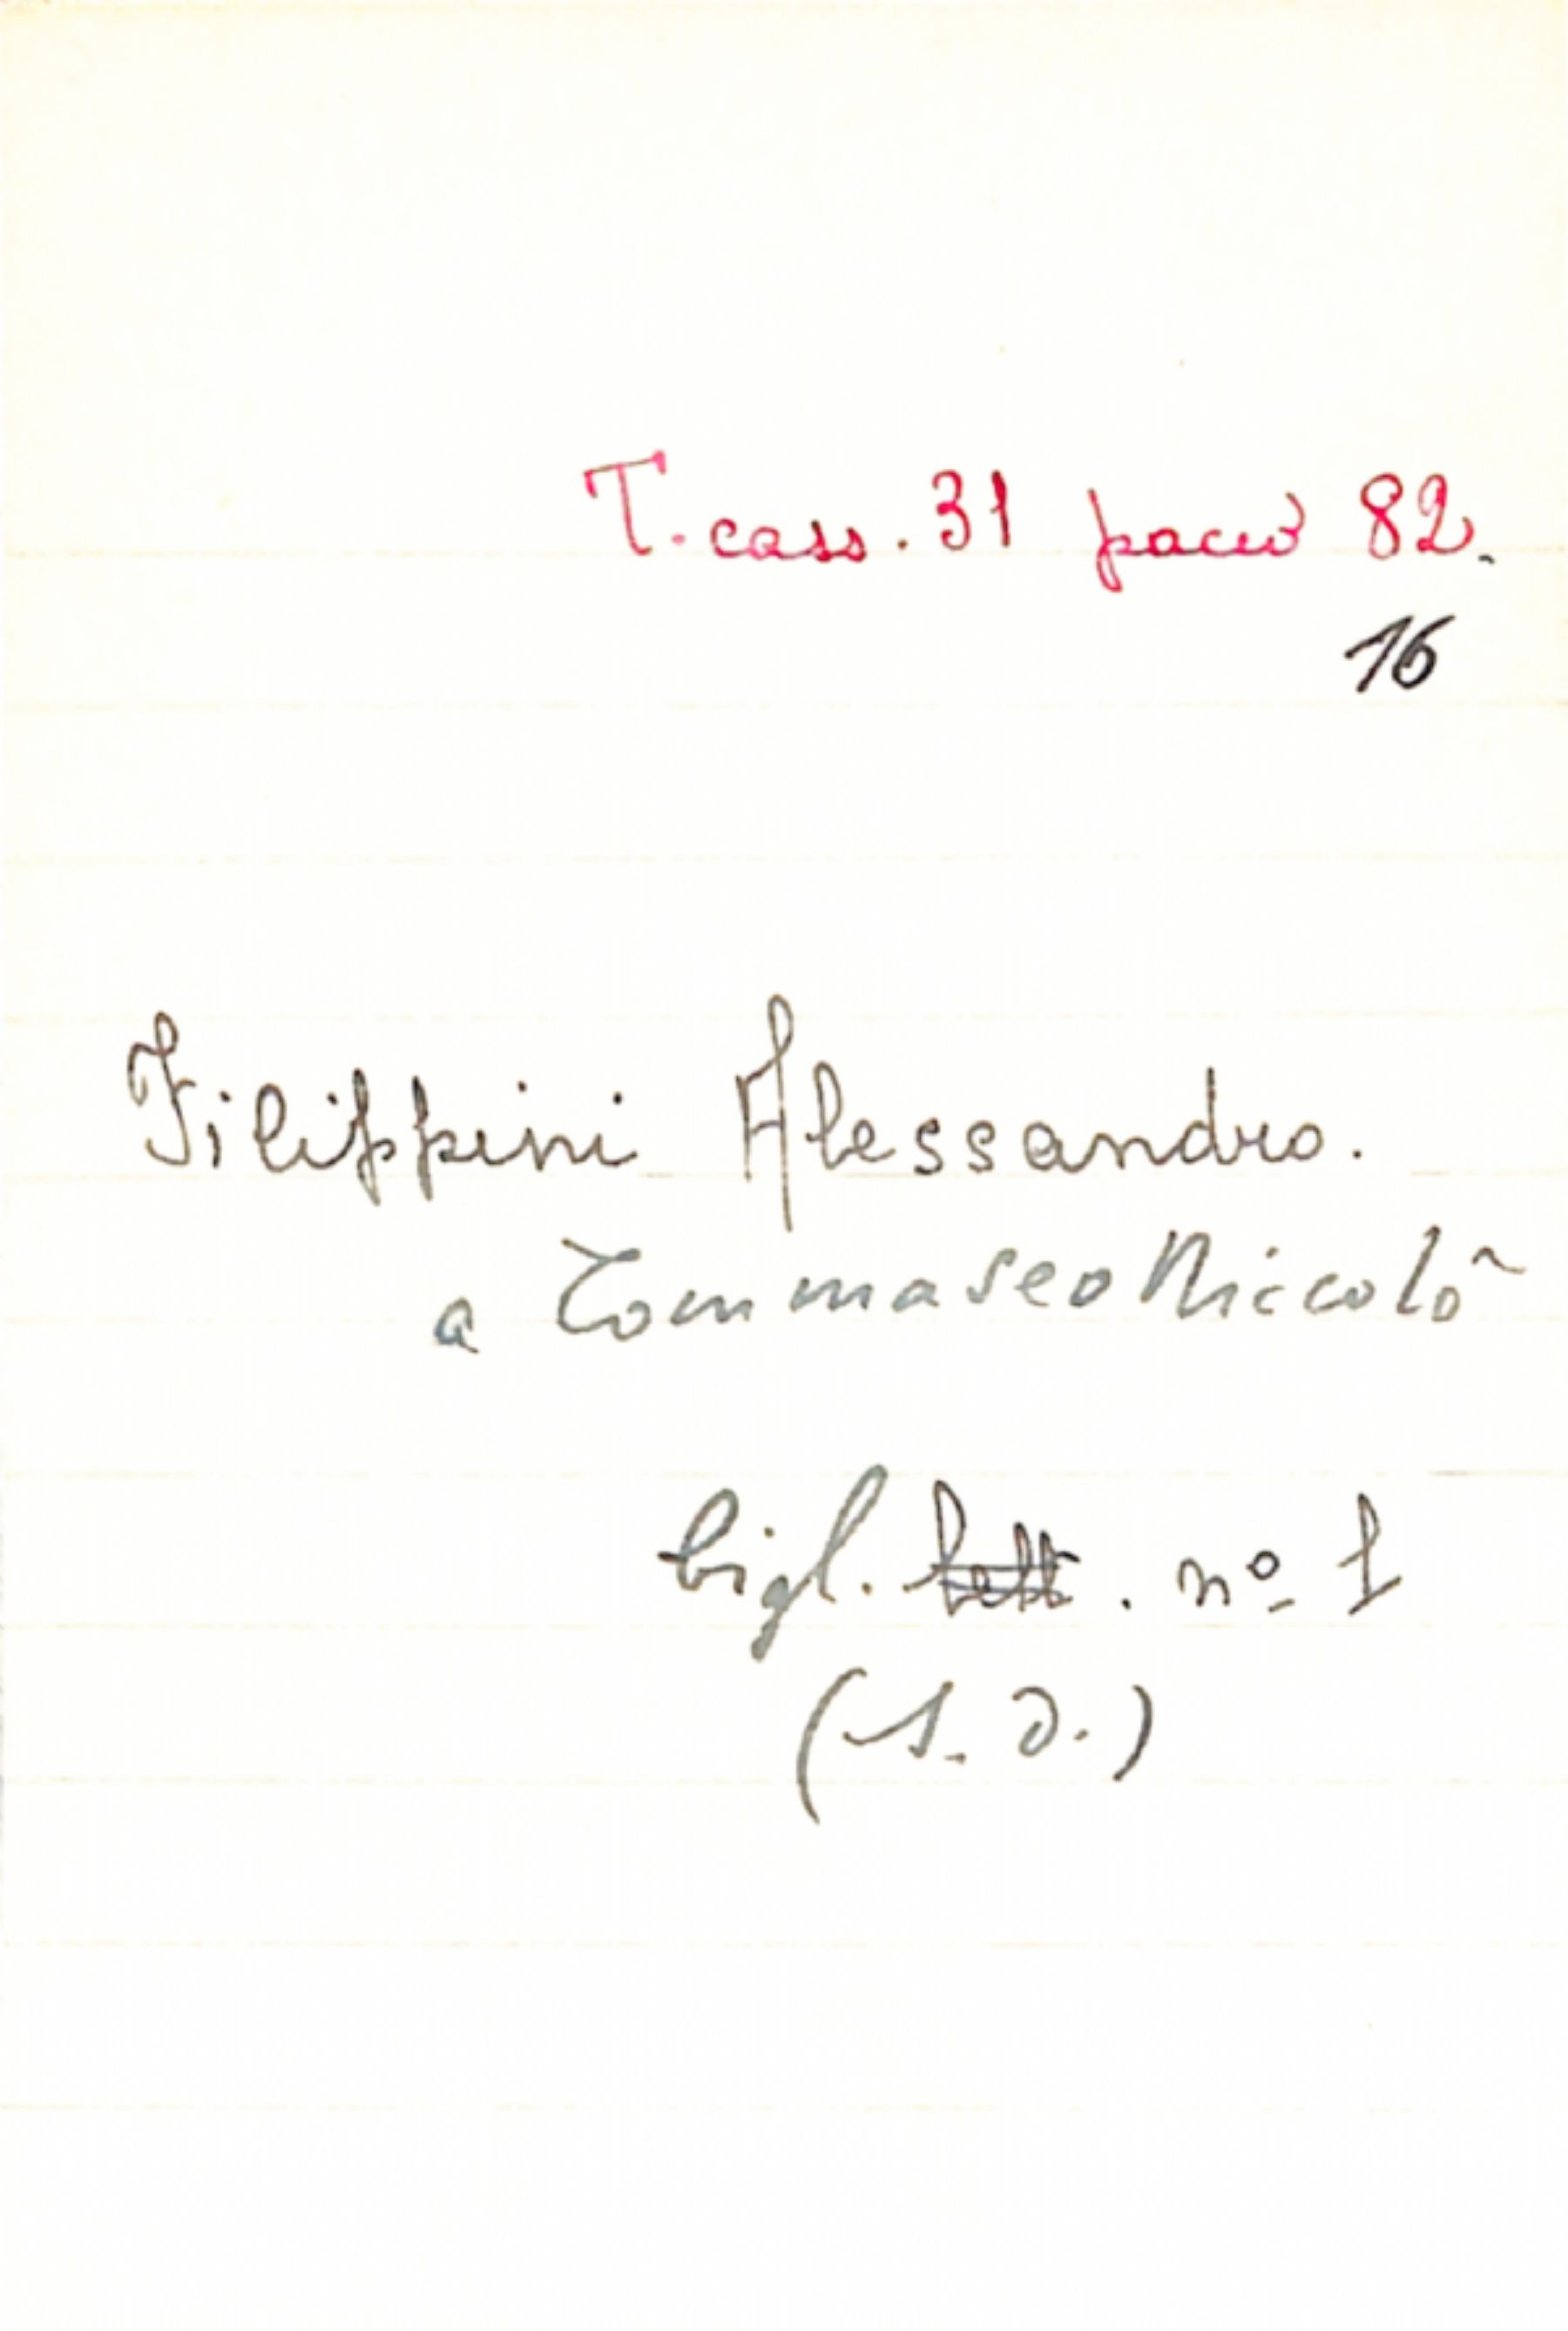 T. cass. 31 pacco 82.
16
Filippini Alessandro.
a Tommaseo Niccolò
bigl. lett. nº 1
(s. d.)